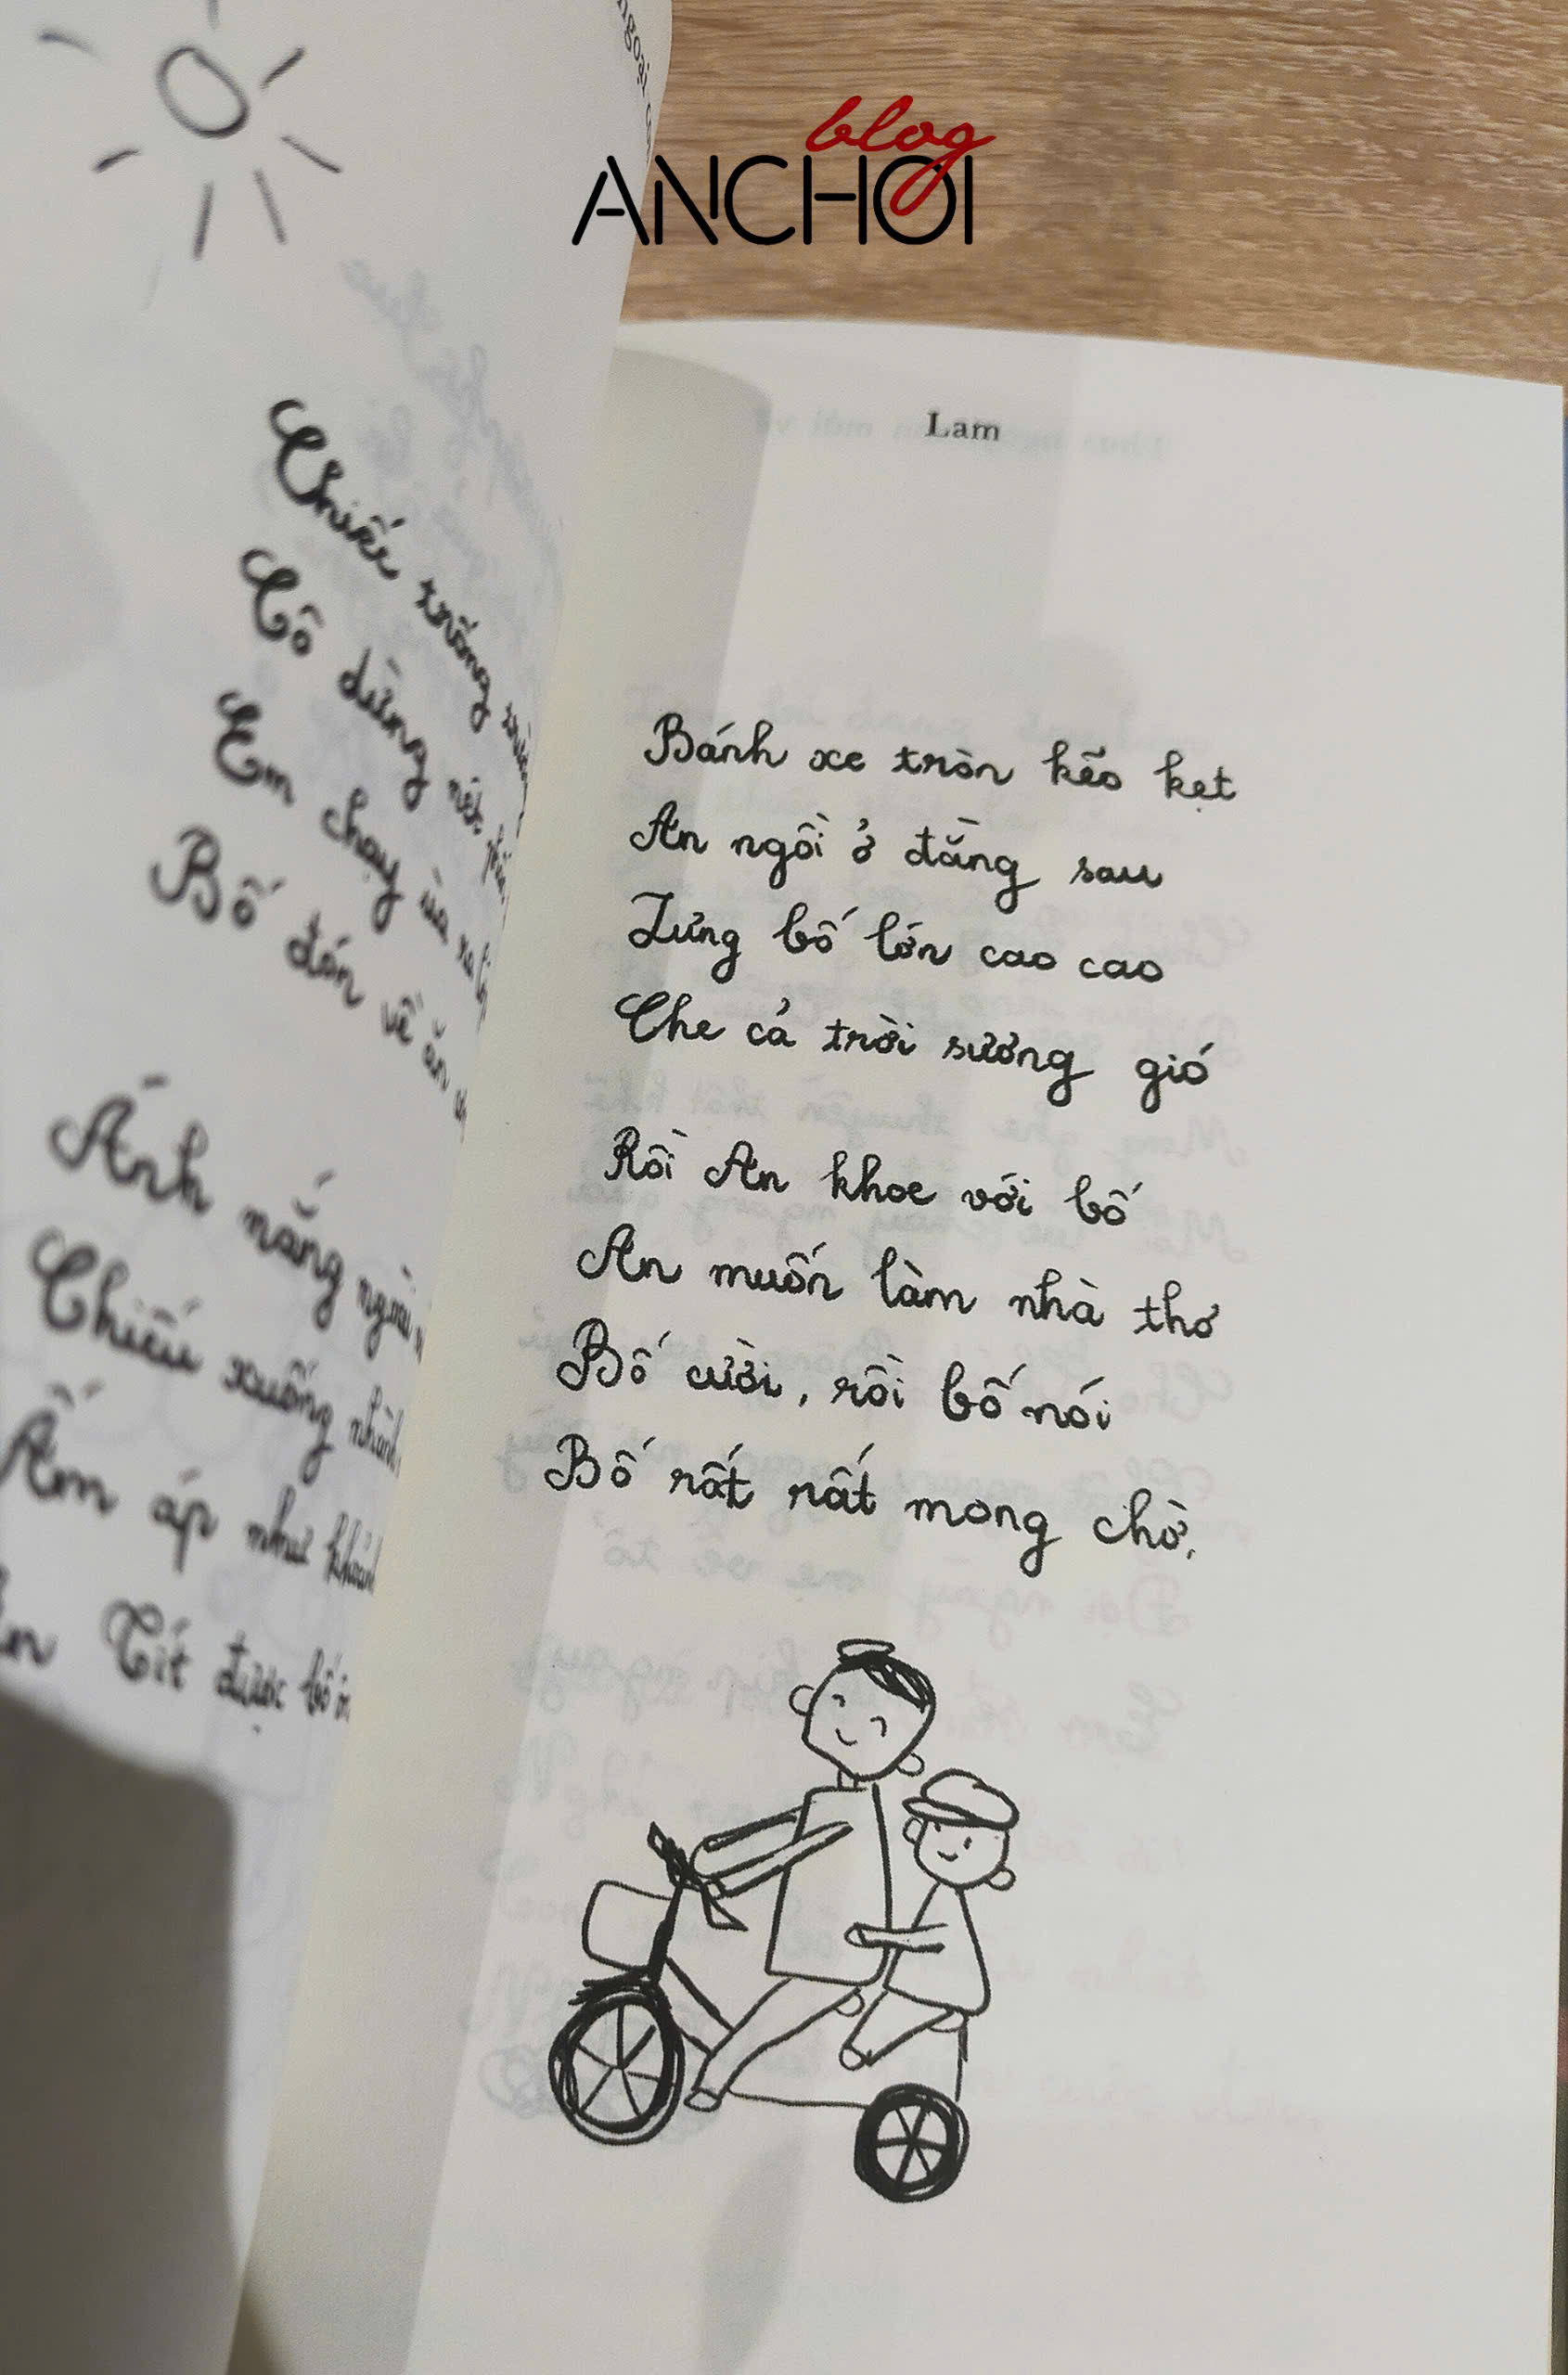 blog
ANCHOI
ngoại
Chiếc trống trường
Cô dừng nét
Em chạy ùa ra
Bố đón về ăn
Ánh nắng ngoài
Chiếu xuống
Ấm áp như
Tít được bố
Lam
Bánh xe tròn kẽo kẹt
An ngồi ở đằng sau
Lưng bố lớn cao cao
Che cả trời sương gió
Rồi An khoe với bố
An muốn làm nhà thơ
Bố cười, rồi bố nói
Bố rất rất mong chờ.